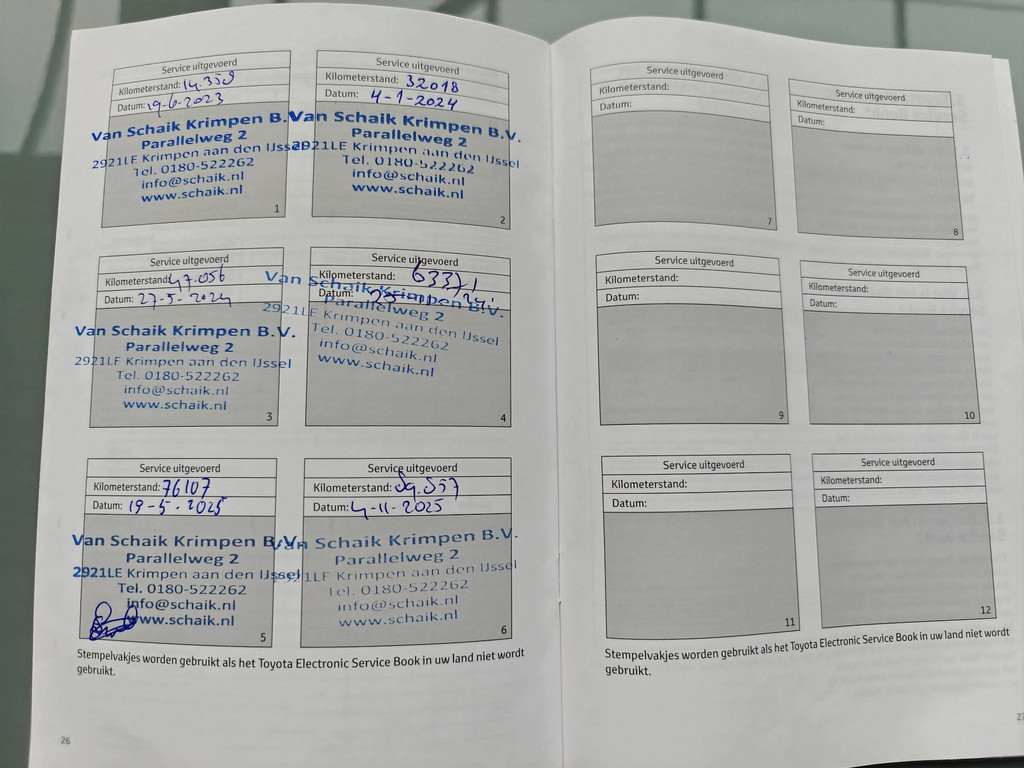 Service uitgevoerd
Kilometerstand: 14.359
Datum: 19-6-2023
Van Schaik Krimpen B.V.
Parallelweg 2
2921LE Krimpen aan den IJssel
Tel. 0180-522262
info@schaik.nl
www.schaik.nl
1
Service uitgevoerd
Kilometerstand: 32018
Datum: 4-1-2024
Van Schaik Krimpen B.V.
Parallelweg 2
2921LE Krimpen aan den IJssel
Tel. 0180-522262
info@schaik.nl
www.schaik.nl
2
Service uitgevoerd
Kilometerstand: 47.056
Datum: 27-5-2024
Van Schaik Krimpen B.V.
Parallelweg 2
2921LE Krimpen aan den IJssel
Tel. 0180-522262
info@schaik.nl
www.schaik.nl
3
Service uitgevoerd
Kilometerstand: 63371
Datum:
Van Schaik Krimpen B.V.
Parallelweg 2
2921LE Krimpen aan den IJssel
Tel. 0180-522262
info@schaik.nl
www.schaik.nl
4
Service uitgevoerd
Kilometerstand: 76107
Datum: 19-5-2025
Van Schaik Krimpen B.V.
Parallelweg 2
2921LE Krimpen aan den IJssel
Tel. 0180-522262
info@schaik.nl
www.schaik.nl
5
Service uitgevoerd
Kilometerstand:
Datum: 4-11-2025
Van Schaik Krimpen B.V.
Parallelweg 2
2921LE Krimpen aan den IJssel
Tel. 0180-522262
info@schaik.nl
www.schaik.nl
6
Stempelvakjes worden gebruikt als het Toyota Electronic Service Book in uw land niet wordt
gebruikt.
26
Service uitgevoerd
Kilometerstand:
Datum:
7
Service uitgevoerd
Kilometerstand:
Datum:
8
Service uitgevoerd
Kilometerstand:
Datum:
9
Service uitgevoerd
Kilometerstand:
Datum:
10
Service uitgevoerd
Kilometerstand:
Datum:
11
Service uitgevoerd
Kilometerstand:
Datum:
12
Stempelvakjes worden gebruikt als het Toyota Electronic Service Book in uw land niet wordt
gebruikt.
27